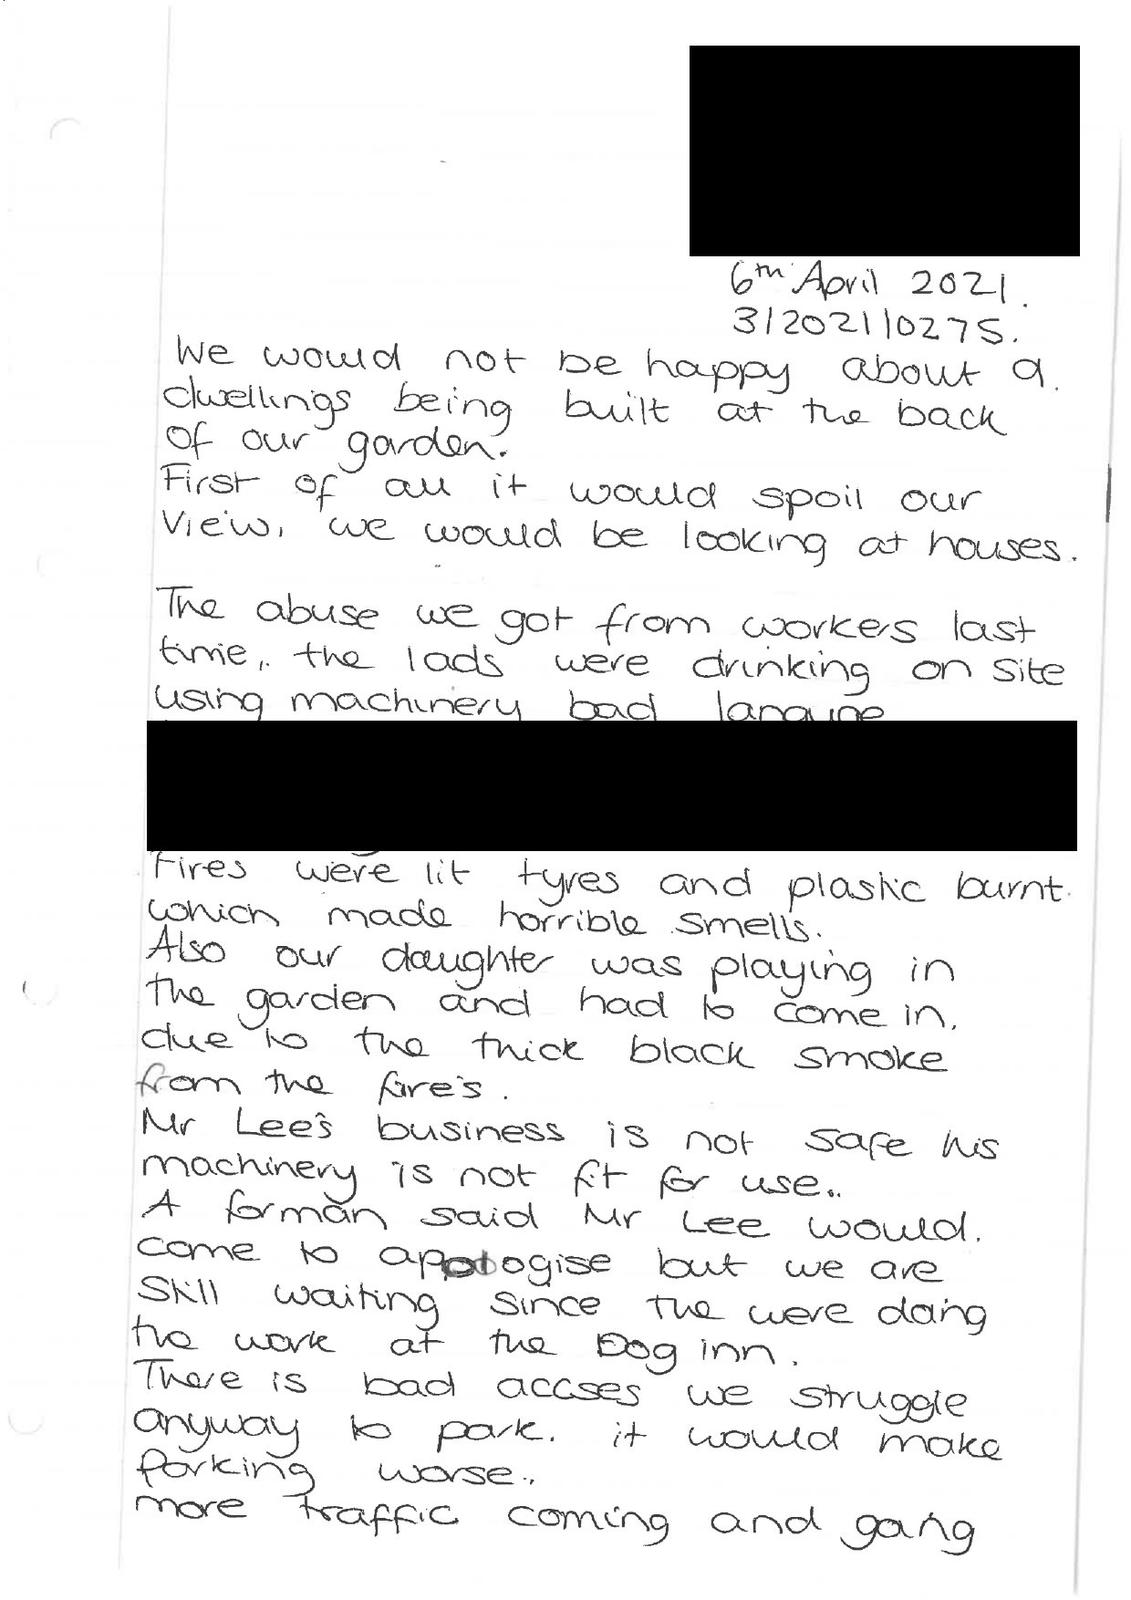 6th April 2021.
3/2021/0275.
We would not be happy about a
dwellings being built at the back
of our garden.
First of all it would spoil our
view, we would be looking at houses.
The abuse we got from workers last
time, the lads were drinking on site
using machinery bad
Fires were lit tyres and plastic burnt
which made horrible smells.
Also our daughter was playing in
the garden and had to come in,
due to the thick black smoke
from the fire's.
Mr Lee's business is not safe his
machinery is not fit for use..
A forman said Mr Lee would.
come to apologise but we are
still waiting since the were doing
the work at the Dog inn.
There is bad accses we struggle
anyway to park. it would make
parking worse..
more traffic coming and going